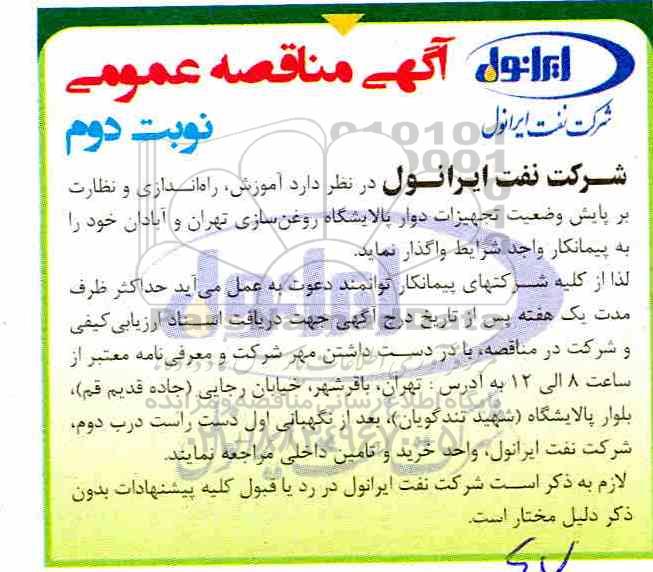 ایرانول
آگهی مناقصه عمومی
شرکت نفت ایرانول
نوبت دوم
شرکت نفت ایرانول در نظر دارد آموزش، راه‌اندازی و نظارت
بر پایش وضعیت تجهیزات دوار پالایشگاه روغن‌سازی تهران و آبادان خود را
به پیمانکار واجد شرایط واگذار نماید.
لذا از کلیه شرکتهای پیمانکار توانمند دعوت به عمل می‌آید حداکثر ظرف
مدت یک هفته پس از تاریخ درج آگهی جهت دریافت اسناد ارزیابی کیفی
و شرکت در مناقصه، با در دست داشتن مهر شرکت و معرفی‌نامه معتبر از
ساعت ۸ الی ۱۲ به آدرس : تهران، باقرشهر، خیابان رجایی (جاده قدیم قم)،
بلوار پالایشگاه (شهید تندگویان)، بعد از نگهبانی اول دست راست درب دوم،
شرکت نفت ایرانول، واحد خرید و تامین داخلی مراجعه نمایند.
لازم به ذکر است شرکت نفت ایرانول در رد یا قبول کلیه پیشنهادات بدون
ذکر دلیل مختار است.